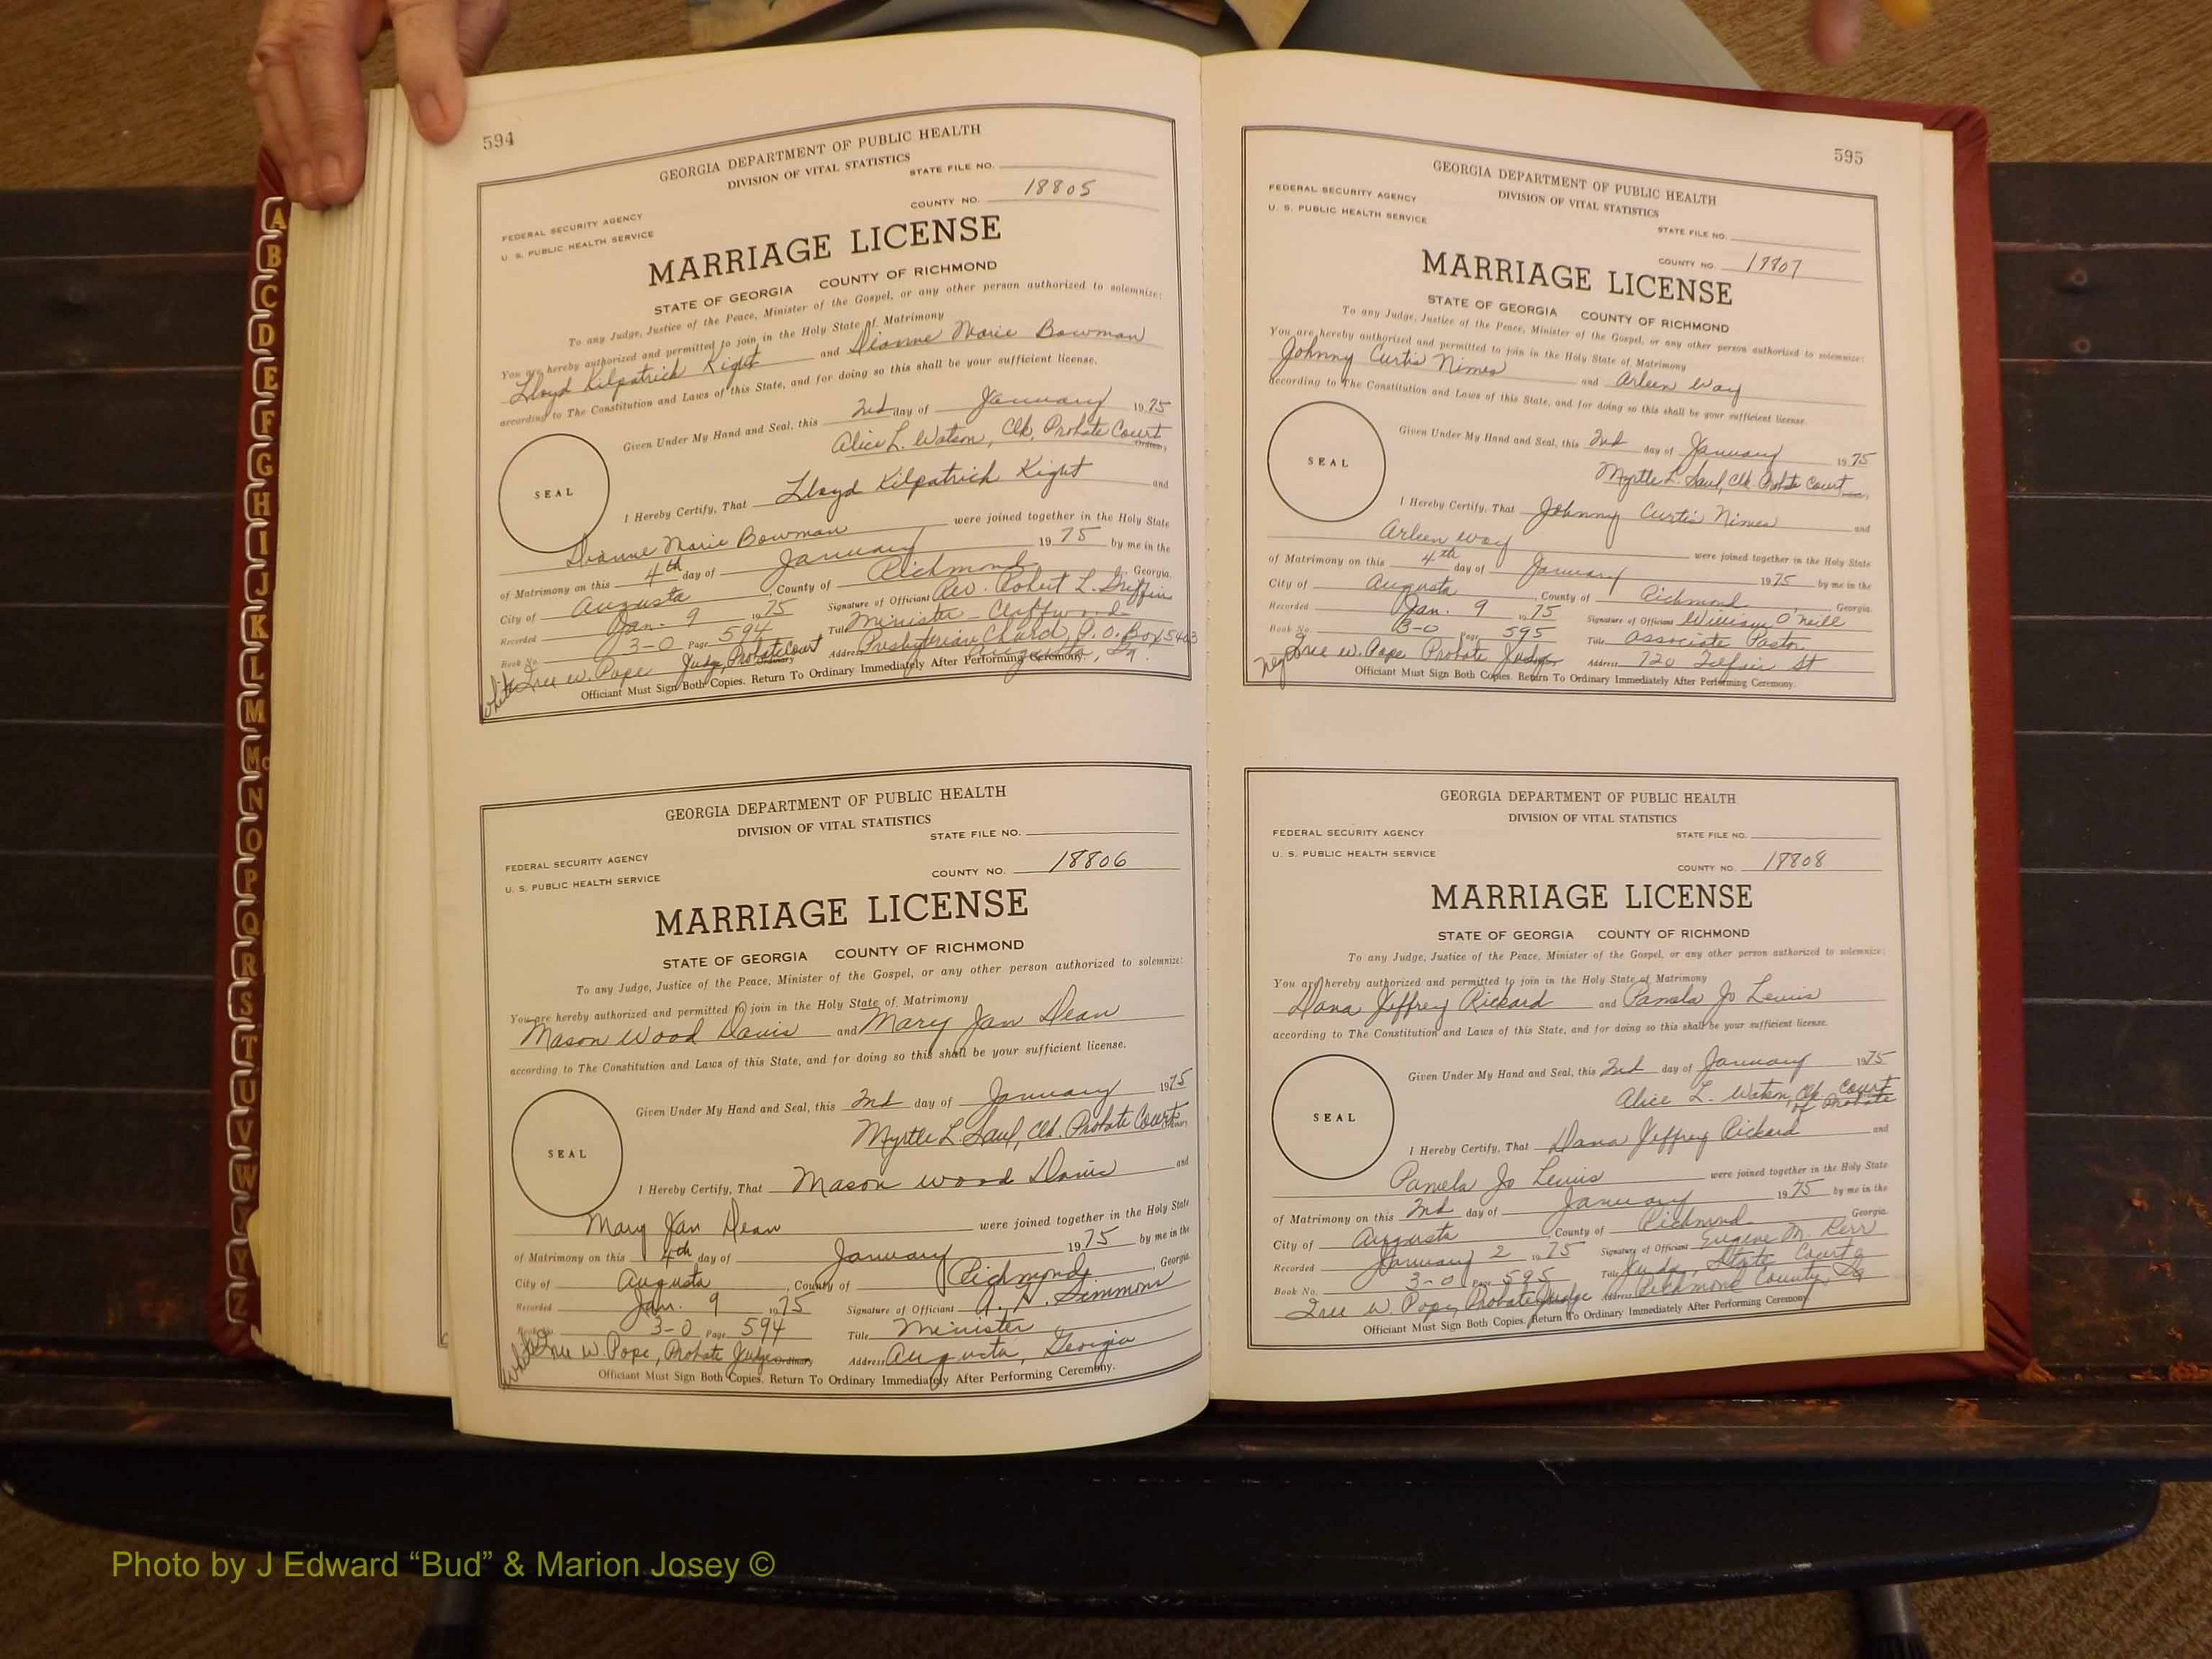 A
B
C
D
E
F
G
H
I
J
K
L
M
Mc
N
O
P
Q
R
S
T
U
V
W
Y
Z
594
GEORGIA DEPARTMENT OF PUBLIC HEALTH
DIVISION OF VITAL STATISTICS
STATE FILE NO.
COUNTY NO. 18805
FEDERAL SECURITY AGENCY
U. S. PUBLIC HEALTH SERVICE
MARRIAGE LICENSE
STATE OF GEORGIA COUNTY OF RICHMOND
To any Judge, Justice of the Peace, Minister of the Gospel, or any other person authorized to solemnize:
You are hereby authorized and permitted to join in the Holy State of Matrimony
Lloyd Kilpatrick Kight and Dianne Marie Bowman
according to The Constitution and Laws of this State, and for doing so this shall be your sufficient license.
Given Under My Hand and Seal, this 2nd day of January 1975
Alice L. Watson, Clk, Probate Court
Ordinary
SEAL
I Hereby Certify, That Lloyd Kilpatrick Kight and
Dianne Marie Bowman were joined together in the Holy State
of Matrimony on this 4th day of January 1975 by me in the
City of Augusta, County of Richmond, Georgia.
Recorded Jan. 9 1975 Signature of Officiant Rev. Robert L. Griffin
Book No. 3-O Page 594 Title Minister - Cliffwood
Iree W. Pope Judge, Probate Court Ordinary Address Presbyterian Church, P.O. Box 5403
Augusta, Ga.
White
Officiant Must Sign Both Copies. Return To Ordinary Immediately After Performing Ceremony.
GEORGIA DEPARTMENT OF PUBLIC HEALTH
DIVISION OF VITAL STATISTICS
STATE FILE NO.
FEDERAL SECURITY AGENCY
U. S. PUBLIC HEALTH SERVICE
COUNTY NO. 18806
MARRIAGE LICENSE
STATE OF GEORGIA COUNTY OF RICHMOND
To any Judge, Justice of the Peace, Minister of the Gospel, or any other person authorized to solemnize:
You are hereby authorized and permitted to join in the Holy State of Matrimony
Mason Wood Davis and Mary Jan Dean
according to The Constitution and Laws of this State, and for doing so this shall be your sufficient license.
Given Under My Hand and Seal, this 2nd day of January 1975
Myrtle L. Saul, Clk. Probate Court
Ordinary
SEAL
I Hereby Certify, That Mason Wood Davis and
Mary Jan Dean were joined together in the Holy State
of Matrimony on this 4th day of January 1975 by me in the
City of Augusta, County of Richmond, Georgia
Recorded Jan. 9 1975 Signature of Officiant H. Simmons
3-O Page 594 Title Minister
Iree W. Pope, Probate Judge Ordinary Address Augusta, Georgia
White
Officiant Must Sign Both Copies. Return To Ordinary Immediately After Performing Ceremony.
595
GEORGIA DEPARTMENT OF PUBLIC HEALTH
DIVISION OF VITAL STATISTICS
FEDERAL SECURITY AGENCY
U. S. PUBLIC HEALTH SERVICE
STATE FILE NO.
COUNTY NO. 18807
MARRIAGE LICENSE
STATE OF GEORGIA COUNTY OF RICHMOND
To any Judge, Justice of the Peace, Minister of the Gospel, or any other person authorized to solemnize:
You are hereby authorized and permitted to join in the Holy State of Matrimony
Johnny Curtis Nimes and Arleen Way
according to The Constitution and Laws of this State, and for doing so this shall be your sufficient license.
Given Under My Hand and Seal, this 2nd day of January 1975
Myrtle L. Saul, Clk Probate Court
SEAL
I Hereby Certify, That Johnny Curtis Nimes and
Arleen Way were joined together in the Holy State
of Matrimony on this 4th day of January 1975 by me in the
City of Augusta, County of Richmond, Georgia.
Recorded Jan. 9 1975 Signature of Officiant William O'Neill
Book No. 3-O Page 595 Title Associate Pastor
Iree W. Pope Probate Judge Address 720 Telfair St
Neg
Officiant Must Sign Both Copies. Return To Ordinary Immediately After Performing Ceremony.
GEORGIA DEPARTMENT OF PUBLIC HEALTH
DIVISION OF VITAL STATISTICS
FEDERAL SECURITY AGENCY STATE FILE NO.
U. S. PUBLIC HEALTH SERVICE
COUNTY NO. 18808
MARRIAGE LICENSE
STATE OF GEORGIA COUNTY OF RICHMOND
To any Judge, Justice of the Peace, Minister of the Gospel, or any other person authorized to solemnize:
You are hereby authorized and permitted to join in the Holy State of Matrimony
Dana Jeffrey Rickard and Pamela Jo Lewis
according to The Constitution and Laws of this State, and for doing so this shall be your sufficient license.
Given Under My Hand and Seal, this 2nd day of January 1975
Alice L. Watson, Clk. Court
of Probate
SEAL
I Hereby Certify, That Dana Jeffrey Rickard and
Pamela Jo Lewis were joined together in the Holy State
of Matrimony on this 2nd day of January 1975 by me in the
City of Augusta, County of Richmond Georgia.
Recorded January 2 1975 Signature of Officiant Eugene M. Kerr
Book No. 3-O Page 595 Title Judge, State Court
Iree W. Pope, Probate Judge Address Richmond County, Ga
Officiant Must Sign Both Copies. Return To Ordinary Immediately After Performing Ceremony
Photo by J Edward “Bud” & Marion Josey ©